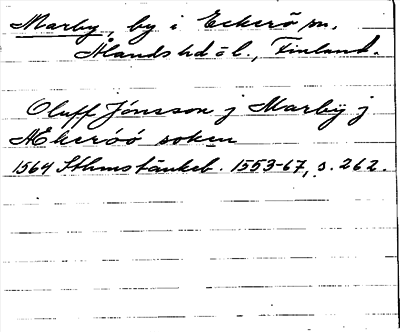 Marby, by i Eckerö sn,
Ålands hd o l., Finland.
Oluff Jónsson j Marbÿ j
Ækeróó soken
1564 Sthms tänkeb. 1553-67, s. 262.